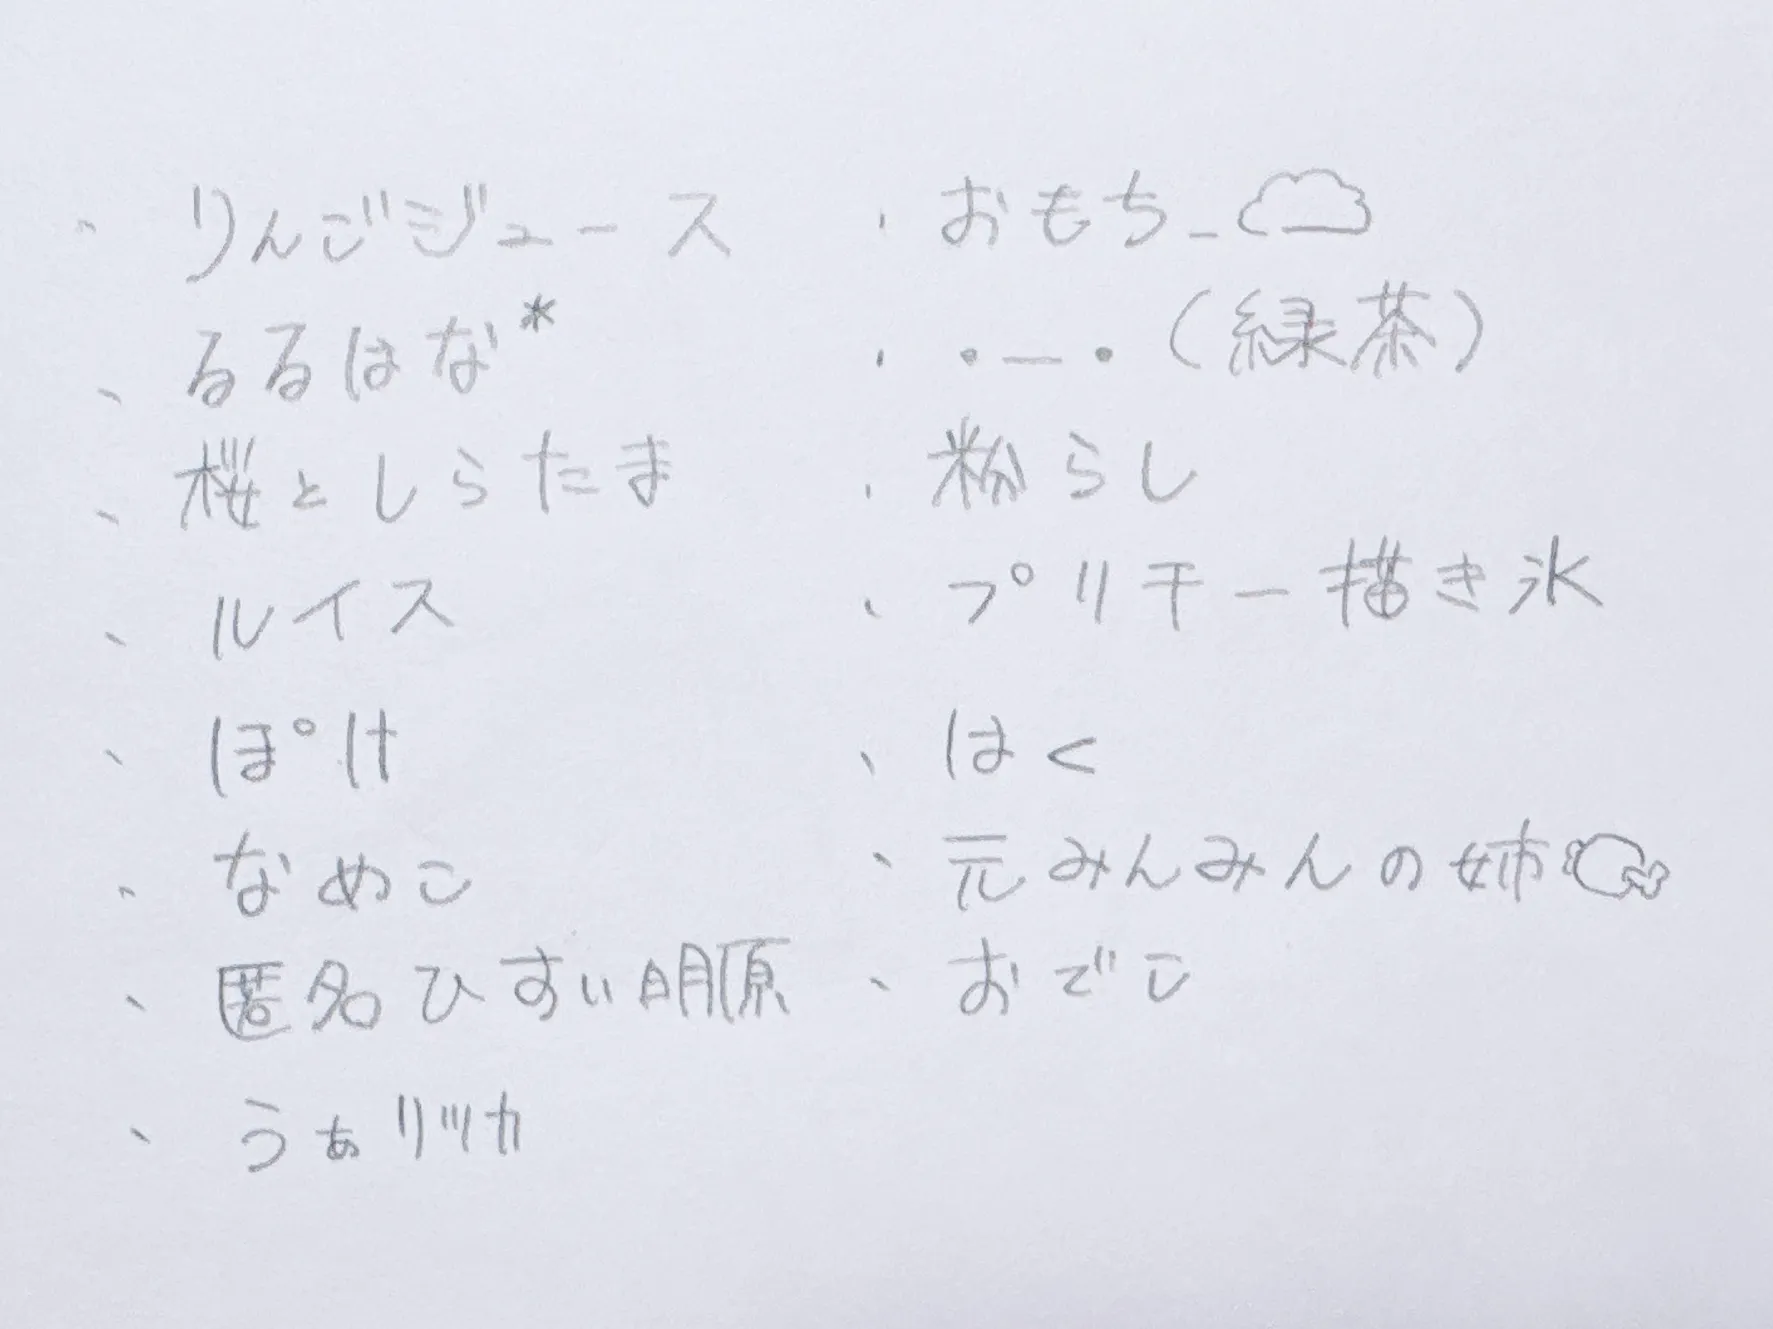 ・りんごジュース
・るるはな*
・桜としらたま
・ルイス
・ぽけ
・なめこ
・匿名ひすい明原
・うぁリツカ
・おもち_
・•ー•(緑茶)
・粉らし
・プリチー描き氷
・はく
・元みんみんの姉
・おでこ